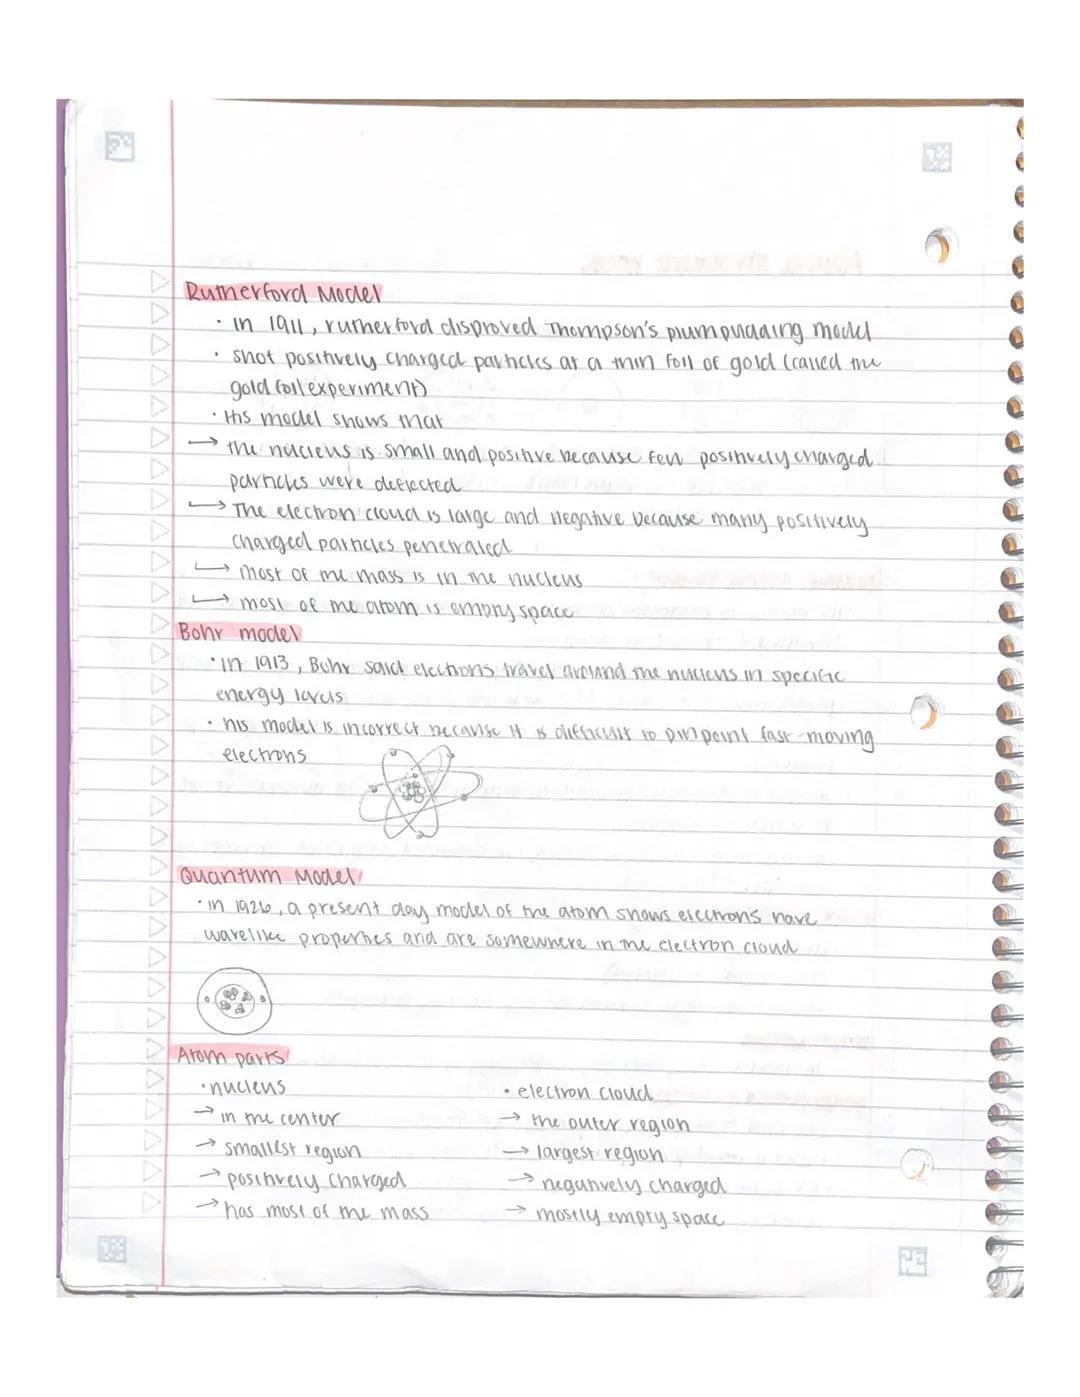 Rutherford Model
· in 1911, rutherford disproved Thompson's plum pudding model
· shot positively charged particles at a thin foil of gold (called the
gold foil experiment)
· His model shows that
→ the nucleus is small and positive because few positively charged
particles were deflected
→ The electron cloud is large and negative because many positively
charged particles penetrated
→ most of the mass is in the nucleus
→ most of the atom is empty space
Bohr model
· in 1913, Bohr said electrons travel around the nucleus in specific
energy levels
· his model is incorrect because it is difficult to pinpoint fast-moving
electrons
Quantum Model
· in 1926, a present day model of the atom shows electrons have
wavelike properties and are somewhere in the electron cloud
Atom parts
· nucleus
→ in the center
→ smallest region
→ positively charged
→ has most of the mass
· electron cloud
→ the outer region
→ largest region
→ negatively charged
→ mostly empty space